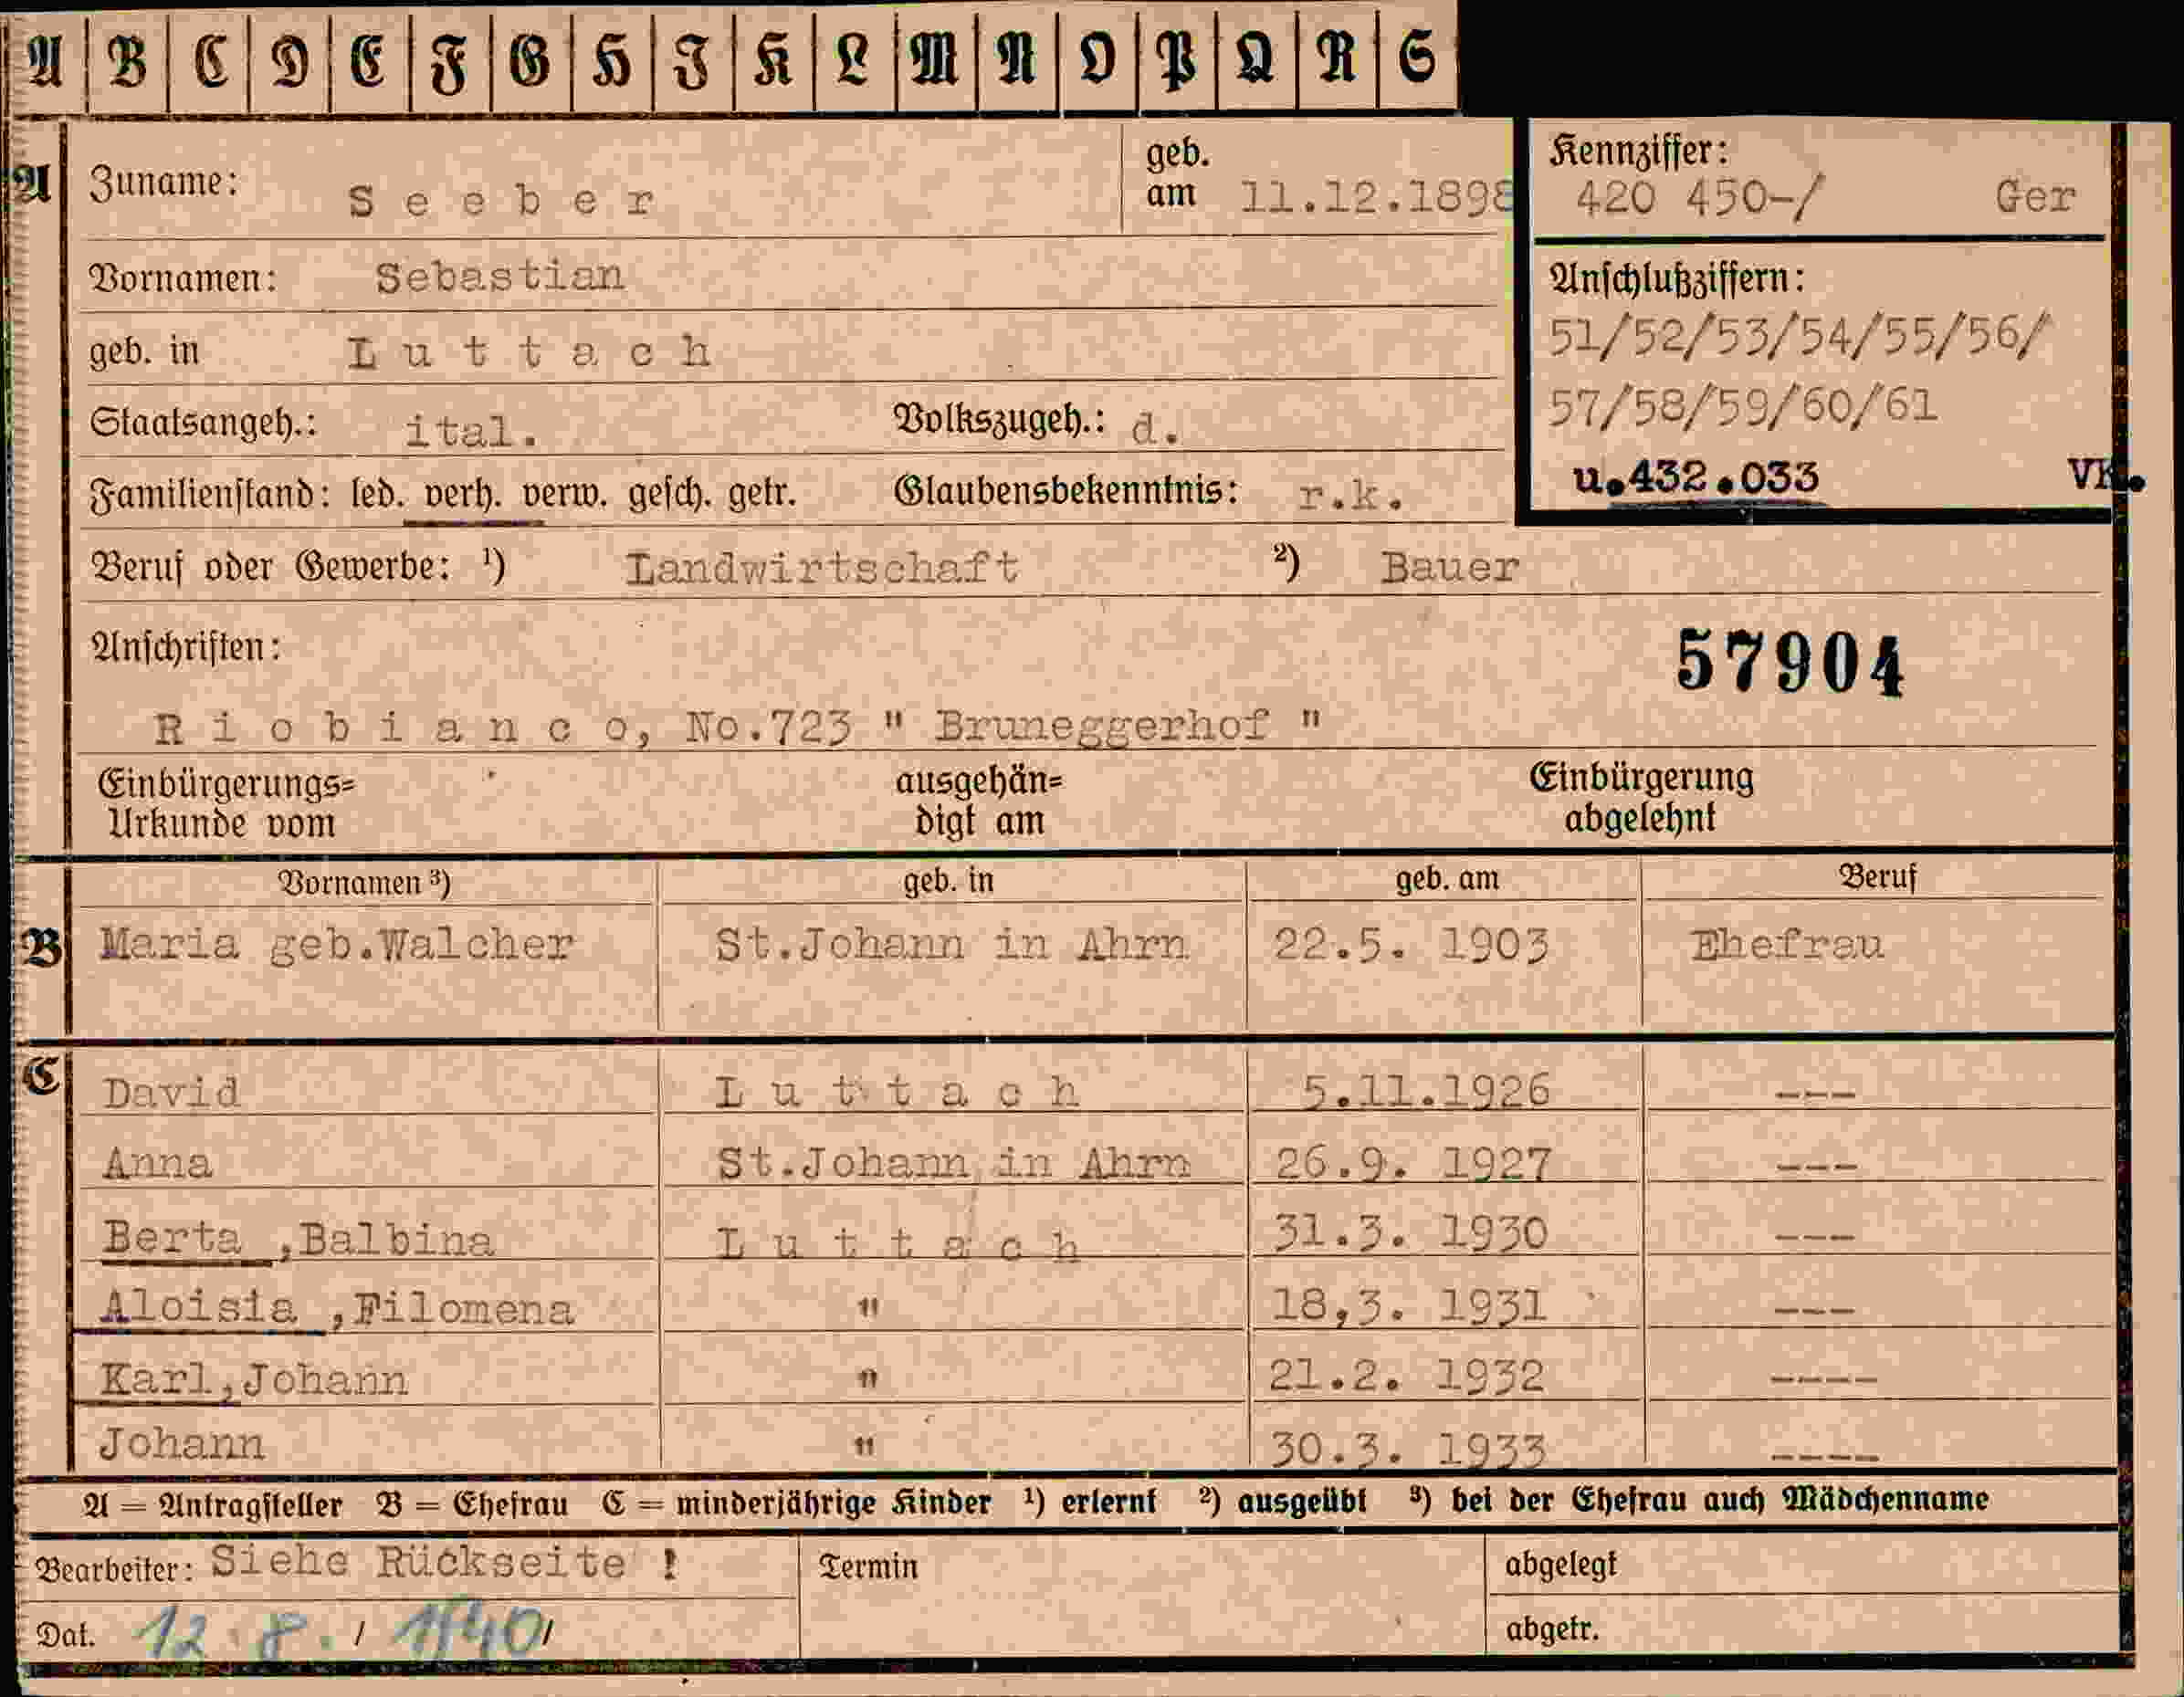 A B C D E F G H I K L M N O P Q R S
A Zuname: Seeber geb. am 11.12.1898
Kennziffer:
420 450-/ Ger
Vornamen: Sebastian
Anschlußziffern:
geb. in Luttach
51/52/53/54/55/56/
57/58/59/60/61
Staatsangeh.: ital. Volkszugeh.: d.
u.432.033 VK.
Familienstand: led. verh. verw. gesch. getr. Glaubensbekenntnis: r.k.
Beruf oder Gewerbe: ¹) Landwirtschaft ²) Bauer
Anschriften:
57904
Riobianco, No.723 " Bruneggerhof "
Einbürgerungs= ausgehän= Einbürgerung
Urkunde vom digt am abgelehnt
Vornamen ³) geb. in geb. am Beruf
B Maria geb.Walcher St.Johann in Ahrn 22.5. 1903 Ehefrau
C David Luttach 5.11.1926 ---
Anna St.Johann in Ahrn 26.9. 1927 ---
Berta ,Balbina Luttach 31.3. 1930 ---
Aloisia ,Filomena " 18,3. 1931 ---
Karl,Johann " 21.2. 1932 ----
Johann " 30.3. 1933 ----
A = Antragsteller B = Ehefrau C = minderjährige Kinder ¹) erlernt ²) ausgeübt ³) bei der Ehefrau auch Mädchenname
Bearbeiter: Siehe Rückseite ! Termin abgelegt
Dat. 12.8./ 1940/ abgetr.